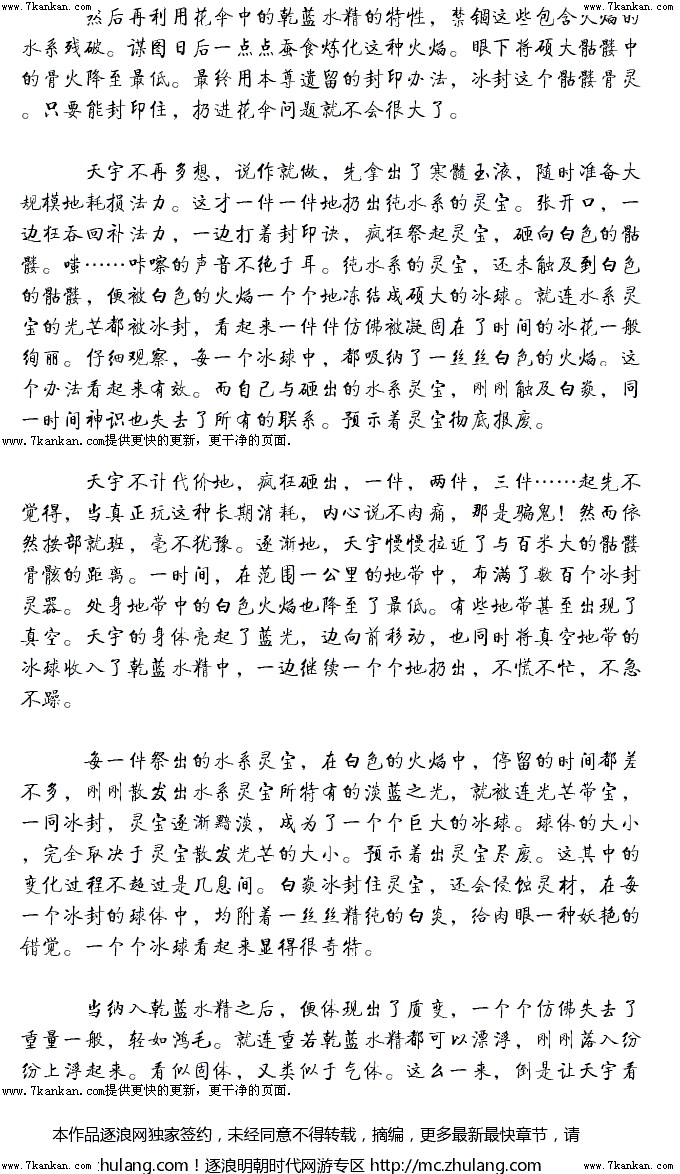 www.7kankan.com www.7kankan.com
然后再利用花伞中的乾蓝水精的特性，禁锢这些包含火焰的
水系残破。谋图日后一点点蚕食炼化这种火焰。眼下将硕大骷髅中
的骨火降至最低。最终用本尊遗留的封印办法，冰封这个骷髅骨灵
。只要能封印住，扔进花伞问题就不会很大了。
天宇不再多想，说作就做，先拿出了寒髓玉液，随时准备大
规模地耗损法力。这才一件一件地扔出纯水系的灵宝。张开口，一
边狂吞回补法力，一边打着封印诀，疯狂祭起灵宝，砸向白色的骷
髅。嗤……咔嚓的声音不绝于耳。纯水系的灵宝，还未触及到白色
的骷髅，便被白色的火焰一个个地冻结成硕大的冰球。就连水系灵
宝的光芒都被冰封，看起来一件件仿佛被凝固在了时间的冰花一般
绚丽。仔细观察，每一个冰球中，都吸纳了一丝丝白色的火焰。这
个办法看起来有效。而自己与砸出的水系灵宝，刚刚触及白焱，同
一时间神识也失去了所有的联系。预示着灵宝彻底报废。
www.7kankan.com提供更快的更新，更干净的页面.
天宇不计代价地，疯狂砸出，一件，两件，三件……起先不
觉得，当真正玩这种长期消耗，内心说不肉痛，那是骗鬼！然而依
然按部就班，毫不犹豫。逐渐地，天宇慢慢拉近了与百米大的骷髅
骨骸的距离。一时间，在范围一公里的地带中，布满了数百个冰封
灵器。处身地带中的白色火焰也降至了最低。有些地带甚至出现了
真空。天宇的身体亮起了蓝光，边向前移动，也同时将真空地带的
冰球收入了乾蓝水精中，一边继续一个个地扔出，不慌不忙，不急
不躁。
每一件祭出的水系灵宝，在白色的火焰中，停留的时间都差
不多，刚刚散发出水系灵宝所特有的淡蓝之光，就被连光芒带宝，
一同冰封，灵宝逐渐黯淡，成为了一个个巨大的冰球。球体的大小
，完全取决于灵宝散发光芒的大小。预示着出灵宝尽废。这其中的
变化过程不超过是几息间。白焱冰封住灵宝，还会侵蚀灵材，在每
一个冰封的球体中，均附着一丝丝精纯的白炎，给肉眼一种妖艳的
错觉。一个个冰球看起来显得很奇特。
当纳入乾蓝水精之后，便体现出了质变，一个个仿佛失去了
重量一般，轻如鸿毛。就连重若乾蓝水精都可以漂浮，刚刚落入纷
纷上浮起来。看似固体，又类似于气体。这么一来，倒是让天宇看
www.7kankan.com提供更快的更新，更干净的页面.
本作品逐浪网独家签约，未经同意不得转载，摘编，更多最新最快章节，请
www.7kankan.com zhulang.com！逐浪明朝时代网游专区 http://mc.zhulang.com www.7kankan.com